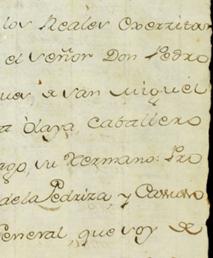 los Reales Exerzitos
el señor Don Pedro
a san Miguel
Olaya, Caballero
ago, su Hermano: Pro
de la Pedriza y
General, que soy de